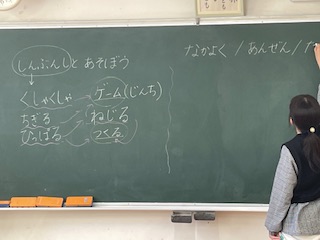 しんぶんしと あそぼう
くしゃくしゃ
ゲーム(じんち)
ちぎる
ねじる
ひっぱる
つくる
なかよく / あんぜん / た